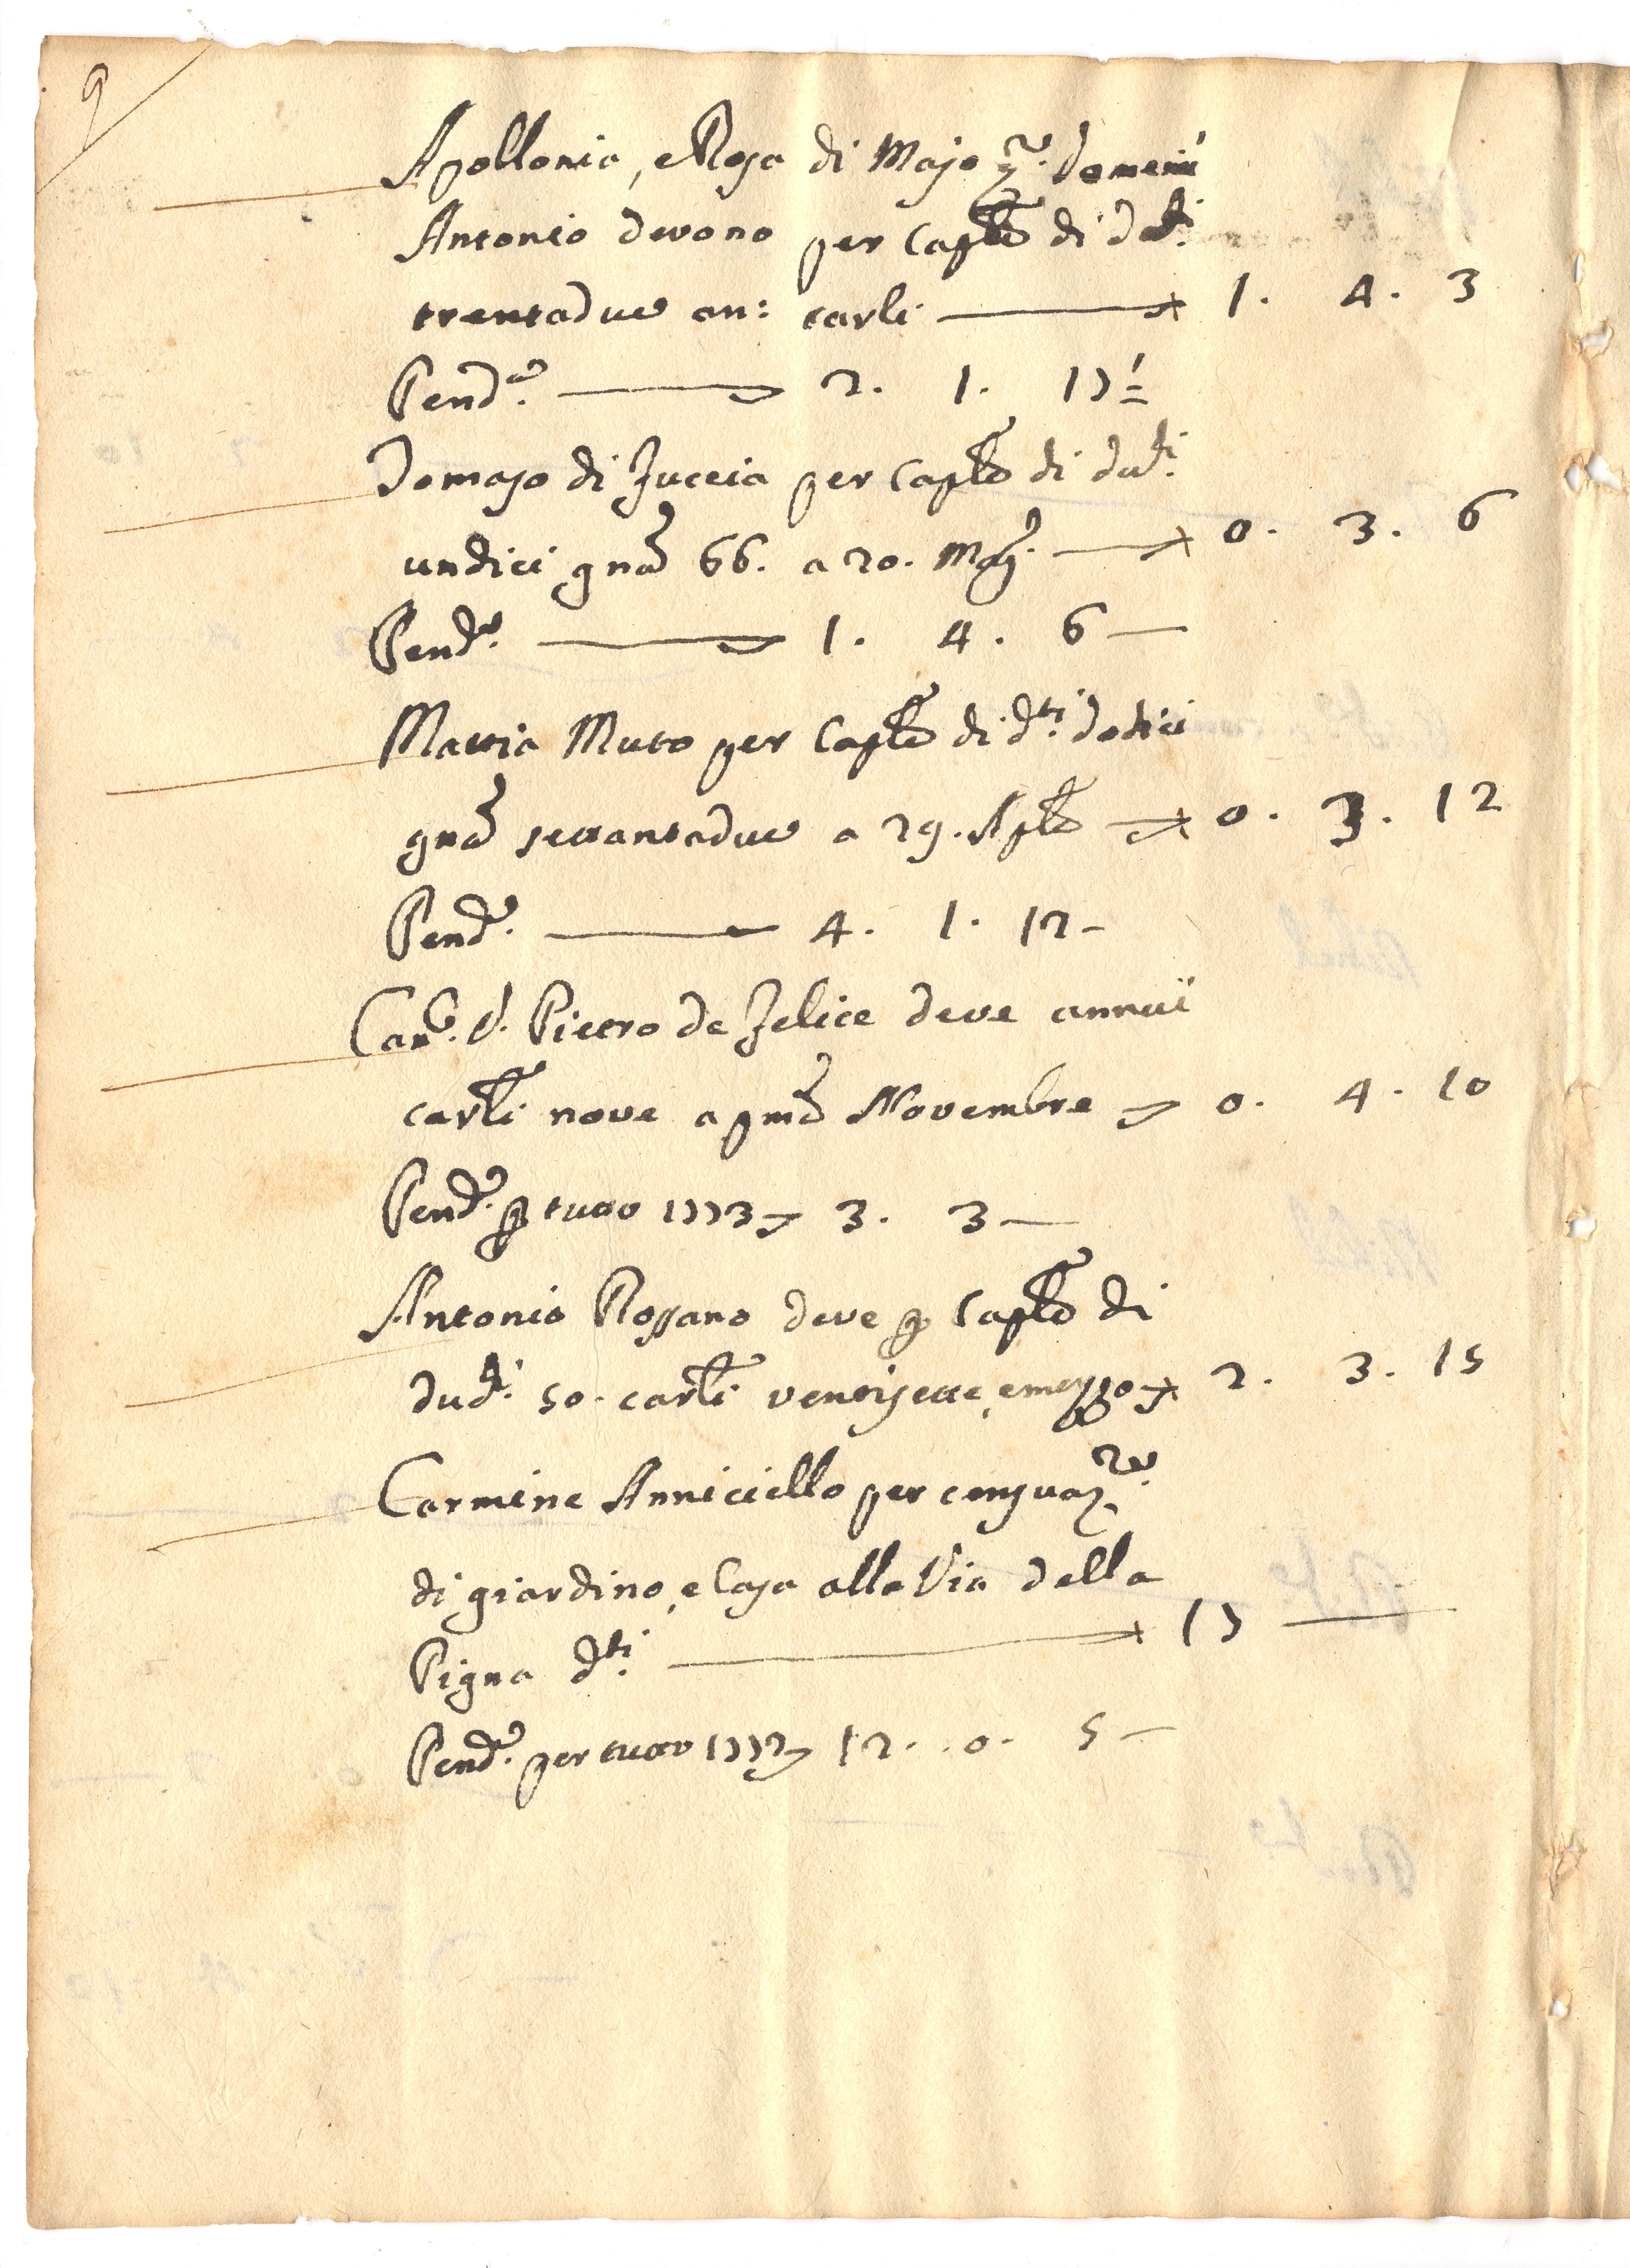 9
Apollonia, e Rosa di Majo qm. Domenico
Antonio devono per Caple di dti
trentadue an: carli → 1. 4. 3
Pende. → 2. 1. 17½
Tomaso di Fuccia per Caple di duti
undici gna 66. a 20. Mag. → 0. 3. 6
Pende. → 1. 4. 6 —
Mattia Muto per Caple di dti dodici
gna settantadue a 29. Aple → 0. 3. 12
Pende. — 4. 1. 12 -
Canco. D. Pietro de Felice deve annui
carli nove a pmo Novembre → 0. 4. 10
Pende. p tutto 1773 → 3. 3 —
Antonio Rossano deve p Caple di
duti 50. carli ventisette, e mezzo → 2. 3. 15
Carmine Anniciello per censuaze.
di giardino, e Casa alla Via della
Pigna dti → 17 —
Pende. per tutto 1772 → 12. 0. 5 —